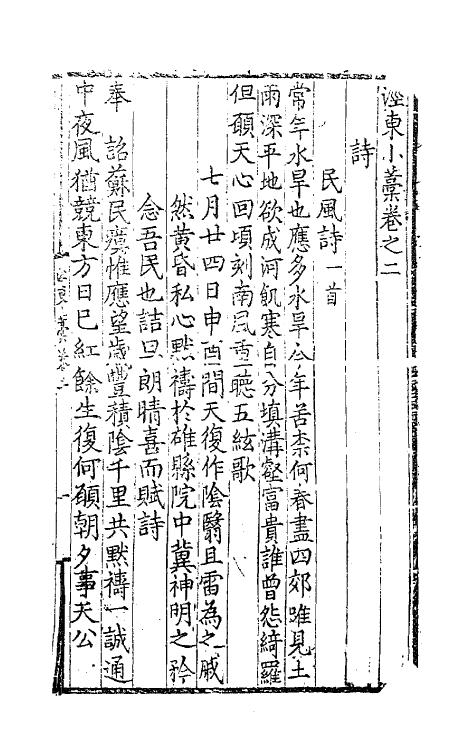 涇東小藁卷之二
詩
民風詩一首
常年水旱也應多水旱今年苦柰何春盡四郊雖見土
雨深平地欲成河飢寒自分填溝壑富貴誰曾怨綺羅
但願天心回頃刻南風重聽五絃歌
七月廿四日申酉間天復作陰翳且雷為之戚
然黃昏私心默禱於碓縣院中冀神明之矜
念吾民也詰旦朗晴喜而賦詩
奉 詔蘇民瘼惟應望歲豐積陰千里共默禱一誠通
中夜風猶競東方日已紅餘生復何願朝夕事天公